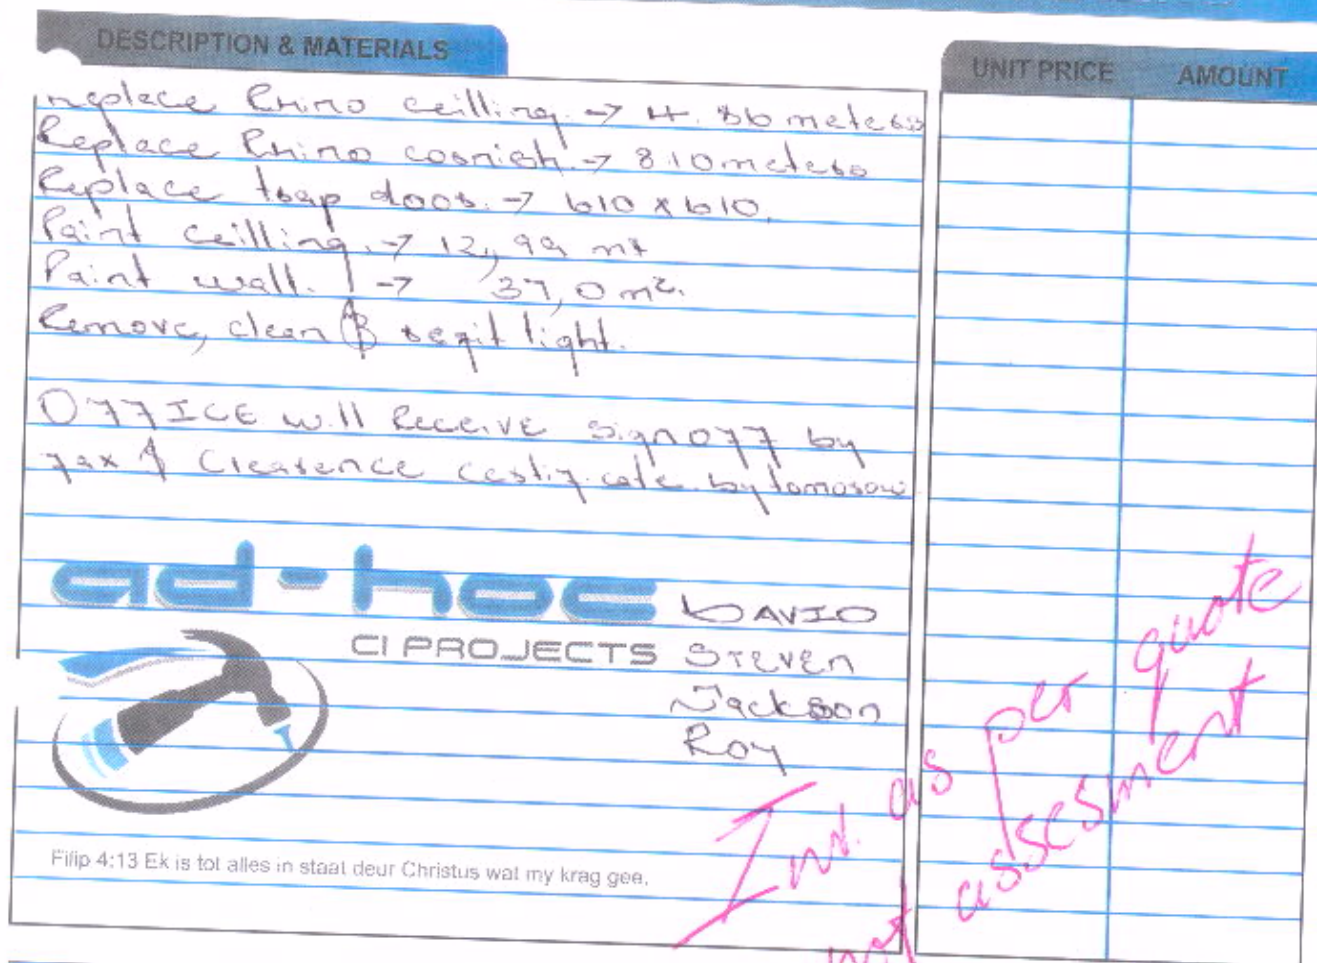 DESCRIPTION & MATERIALS
UNIT PRICE AMOUNT
replace Rhino ceilling. → 4.86 meters
Replace Rhino cornish. → 8.10 meters
Replace trap door. → 610 x 610.
Paint ceilling. → 12,99 m²
Paint wall. → 37,0 m².
Remove, clean & refit light.
OFFICE will Receive sign off by
fax & Clearence certificate by tomorow
ad-hoc
CI PROJECTS
DAVID
STEVEN
Jackson
Roy
Inv. as per quote
not assesment
Filip 4:13 Ek is tot alles in staat deur Christus wat my krag gee.